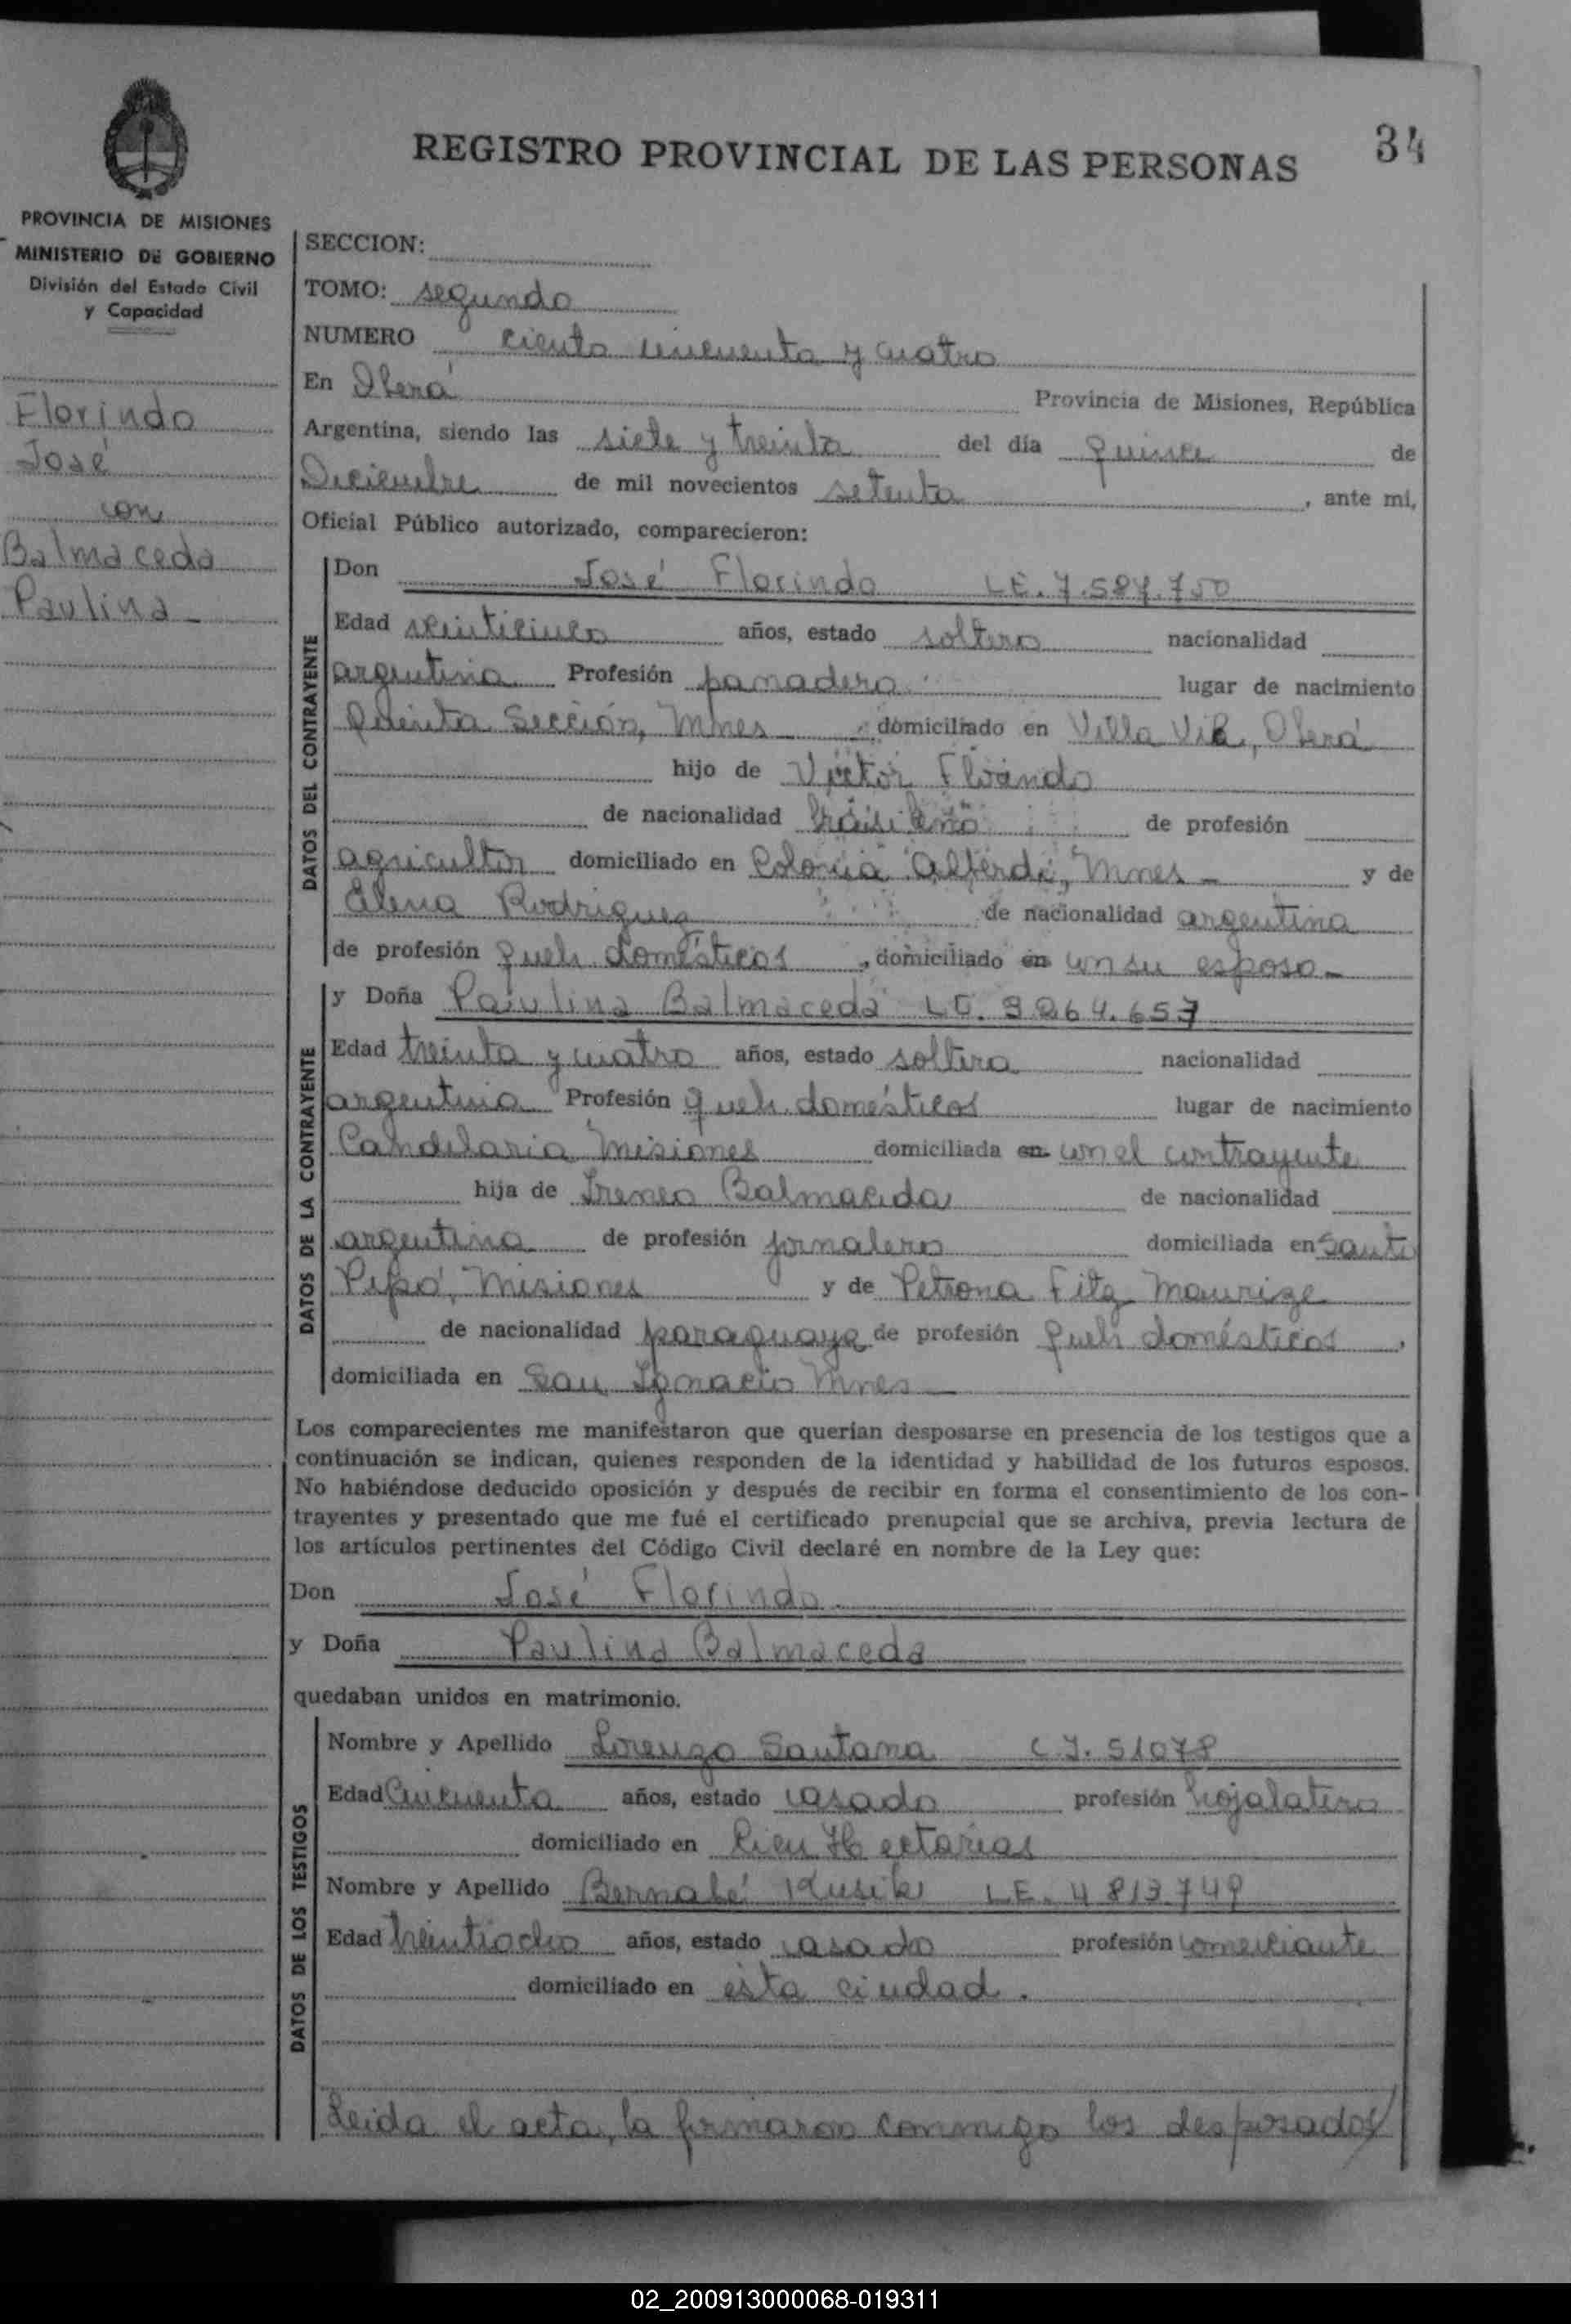 34
REGISTRO PROVINCIAL DE LAS PERSONAS
PROVINCIA DE MISIONES
MINISTERIO DE GOBIERNO
División del Estado Civil
y Capacidad
Florindo
José
con
Balmaceda
Paulina
SECCION:
TOMO: segundo
NUMERO ciento cincuenta y cuatro
En Oberá Provincia de Misiones, República
Argentina, siendo las siete y treinta del día quince de
Diciembre de mil novecientos setenta, ante mi,
Oficial Público autorizado, comparecieron:
DATOS DEL CONTRAYENTE
Don José Florindo LE. 7.587.750
Edad veinticinco años, estado soltero nacionalidad
argentina Profesión panadero lugar de nacimiento
Quinta Sección, Mnes domiciliado en Villa Oberá
hijo de Victor Florindo
de nacionalidad brasileña de profesión
agricultor domiciliado en Colonia Alberdi, Mnes y de
Elena Rodriguez de nacionalidad argentina
de profesión queh. domésticos, domiciliado en con su esposo
DATOS DE LA CONTRAYENTE
y Doña Paulina Balmaceda LC. 3264.657
Edad treinta y cuatro años, estado soltera nacionalidad
argentina Profesión queh. domésticos lugar de nacimiento
Candelaria Misiones domiciliada en con el contrayente
hija de Ireneo Balmaceda de nacionalidad
argentina de profesión jornalero domiciliada en Santo
Pipó, Misiones y de Petrona Fitz Maurize
de nacionalidad paraguaya de profesión queh domésticos,
domiciliada en San Ignacio Mnes
Los comparecientes me manifestaron que querían desposarse en presencia de los testigos que a
continuación se indican, quienes responden de la identidad y habilidad de los futuros esposos.
No habiéndose deducido oposición y después de recibir en forma el consentimiento de los con-
trayentes y presentado que me fué el certificado prenupcial que se archiva, previa lectura de
los artículos pertinentes del Código Civil declaré en nombre de la Ley que:
Don José Florindo
y Doña Paulina Balmaceda
quedaban unidos en matrimonio.
DATOS DE LOS TESTIGOS
Nombre y Apellido Lorenzo Santana C.I. 51078
Edad Cincuenta años, estado casado profesión hojalatero
domiciliado en Cien Hectáreas
Nombre y Apellido Bernabé Kusik LE. 4813749
Edad treintiocho años, estado casado profesión comerciante
domiciliado en esta ciudad.
Leida el acta, la firmaron conmigo los desposados
02_200913000068-019311